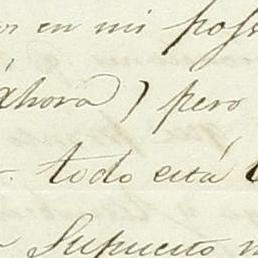 en mi poss
ahora) pero
todo está
Supuesto